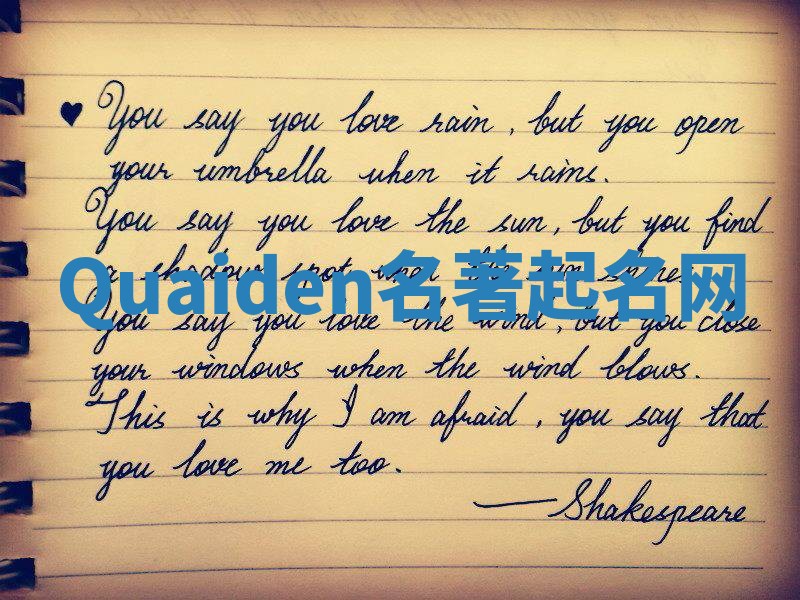 ♥ You say you love rain, but you open
your umbrella when it rains.
You say you love the sun, but you find
a shadow spot when the sun shines
Quaiden名著起名网
You say you love the wind, but you close
your windows when the wind blows.
This is why I am afraid, you say that
you love me too.
—Shakespeare